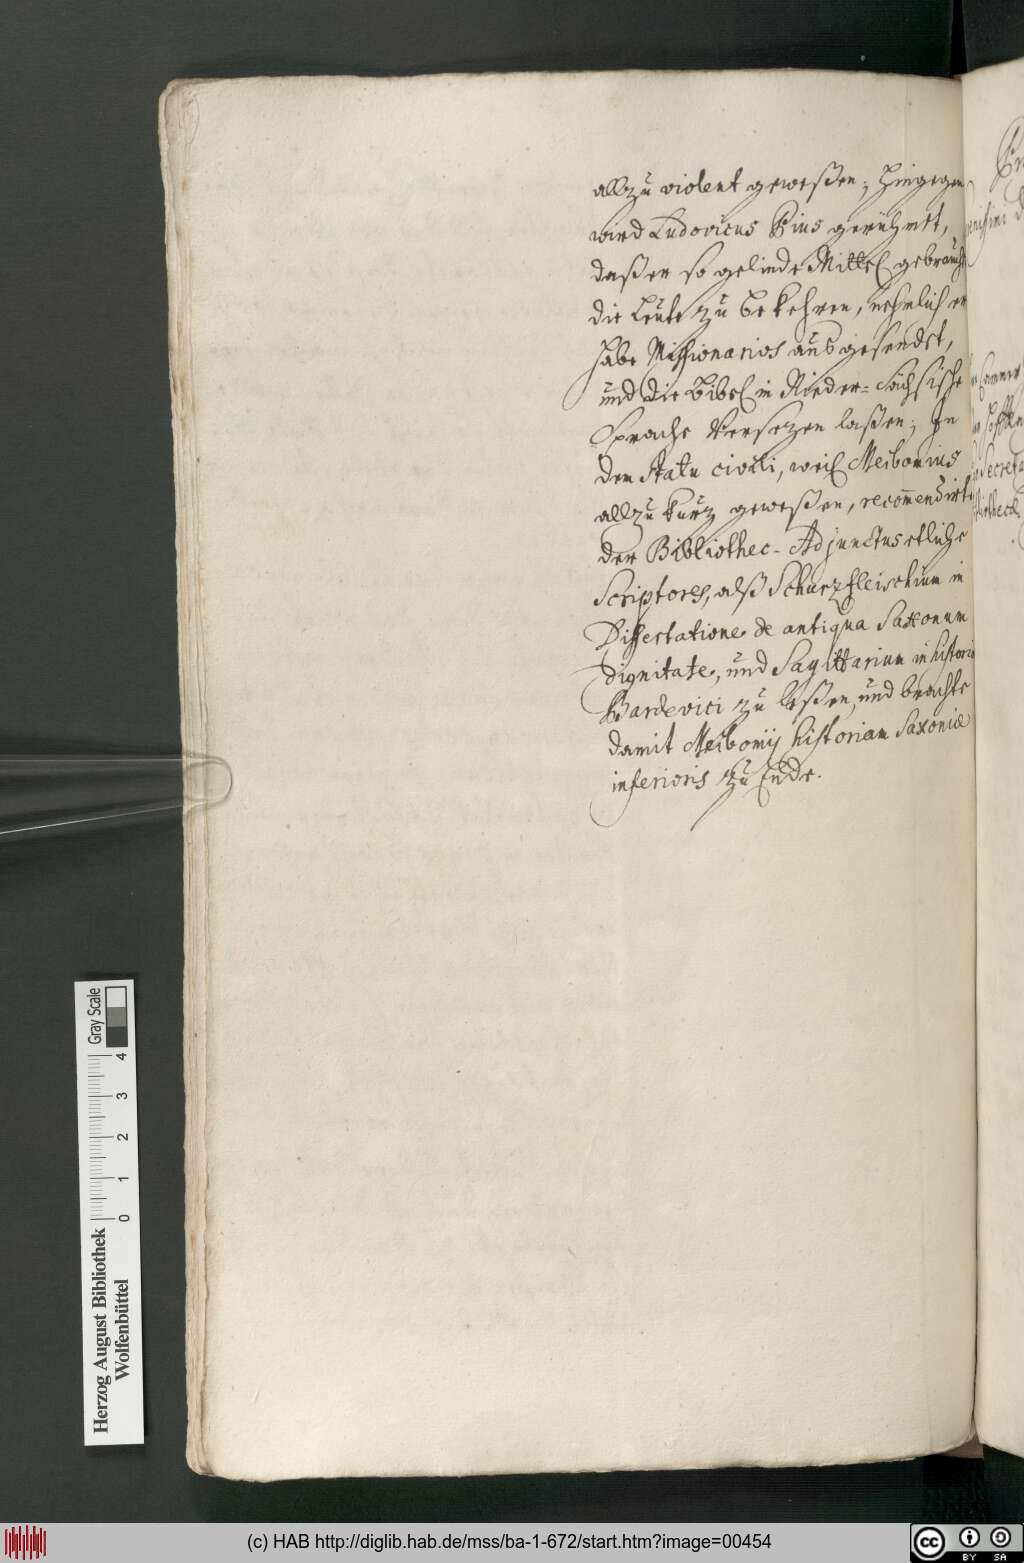 allzu violent geweßen; hingegen
wird Ludovicus Pius gerühmt,
daß er so gelinde Mittel gebraucht
die Leute zu bekehren, nehmlich er
habe Missionarios ausgesendet,
und die Bibel in Nieder-Sächsische
Sprache versezen laßen; In
dem statu civili, weil Meibomius
allzu kurz geweßen, recom̄endirte
der Bibliothec-Adjunctus etliche
Scriptores, alß Schurzfleischium in
Dissertatione de antiqua Saxonum
dignitate, und Sagittarium in histori
Bardevici zu leßen, und brachte
damit Meibomij historiam Saxoniæ
inferioris zu Ende.
Cammer
Secret
Gray Scale
4
3
2
1
0
Herzog August Bibliothek
Wolfenbüttel
(c) HAB http://diglib.hab.de/mss/ba-1-672/start.htm?image=00454
cc
BY SA